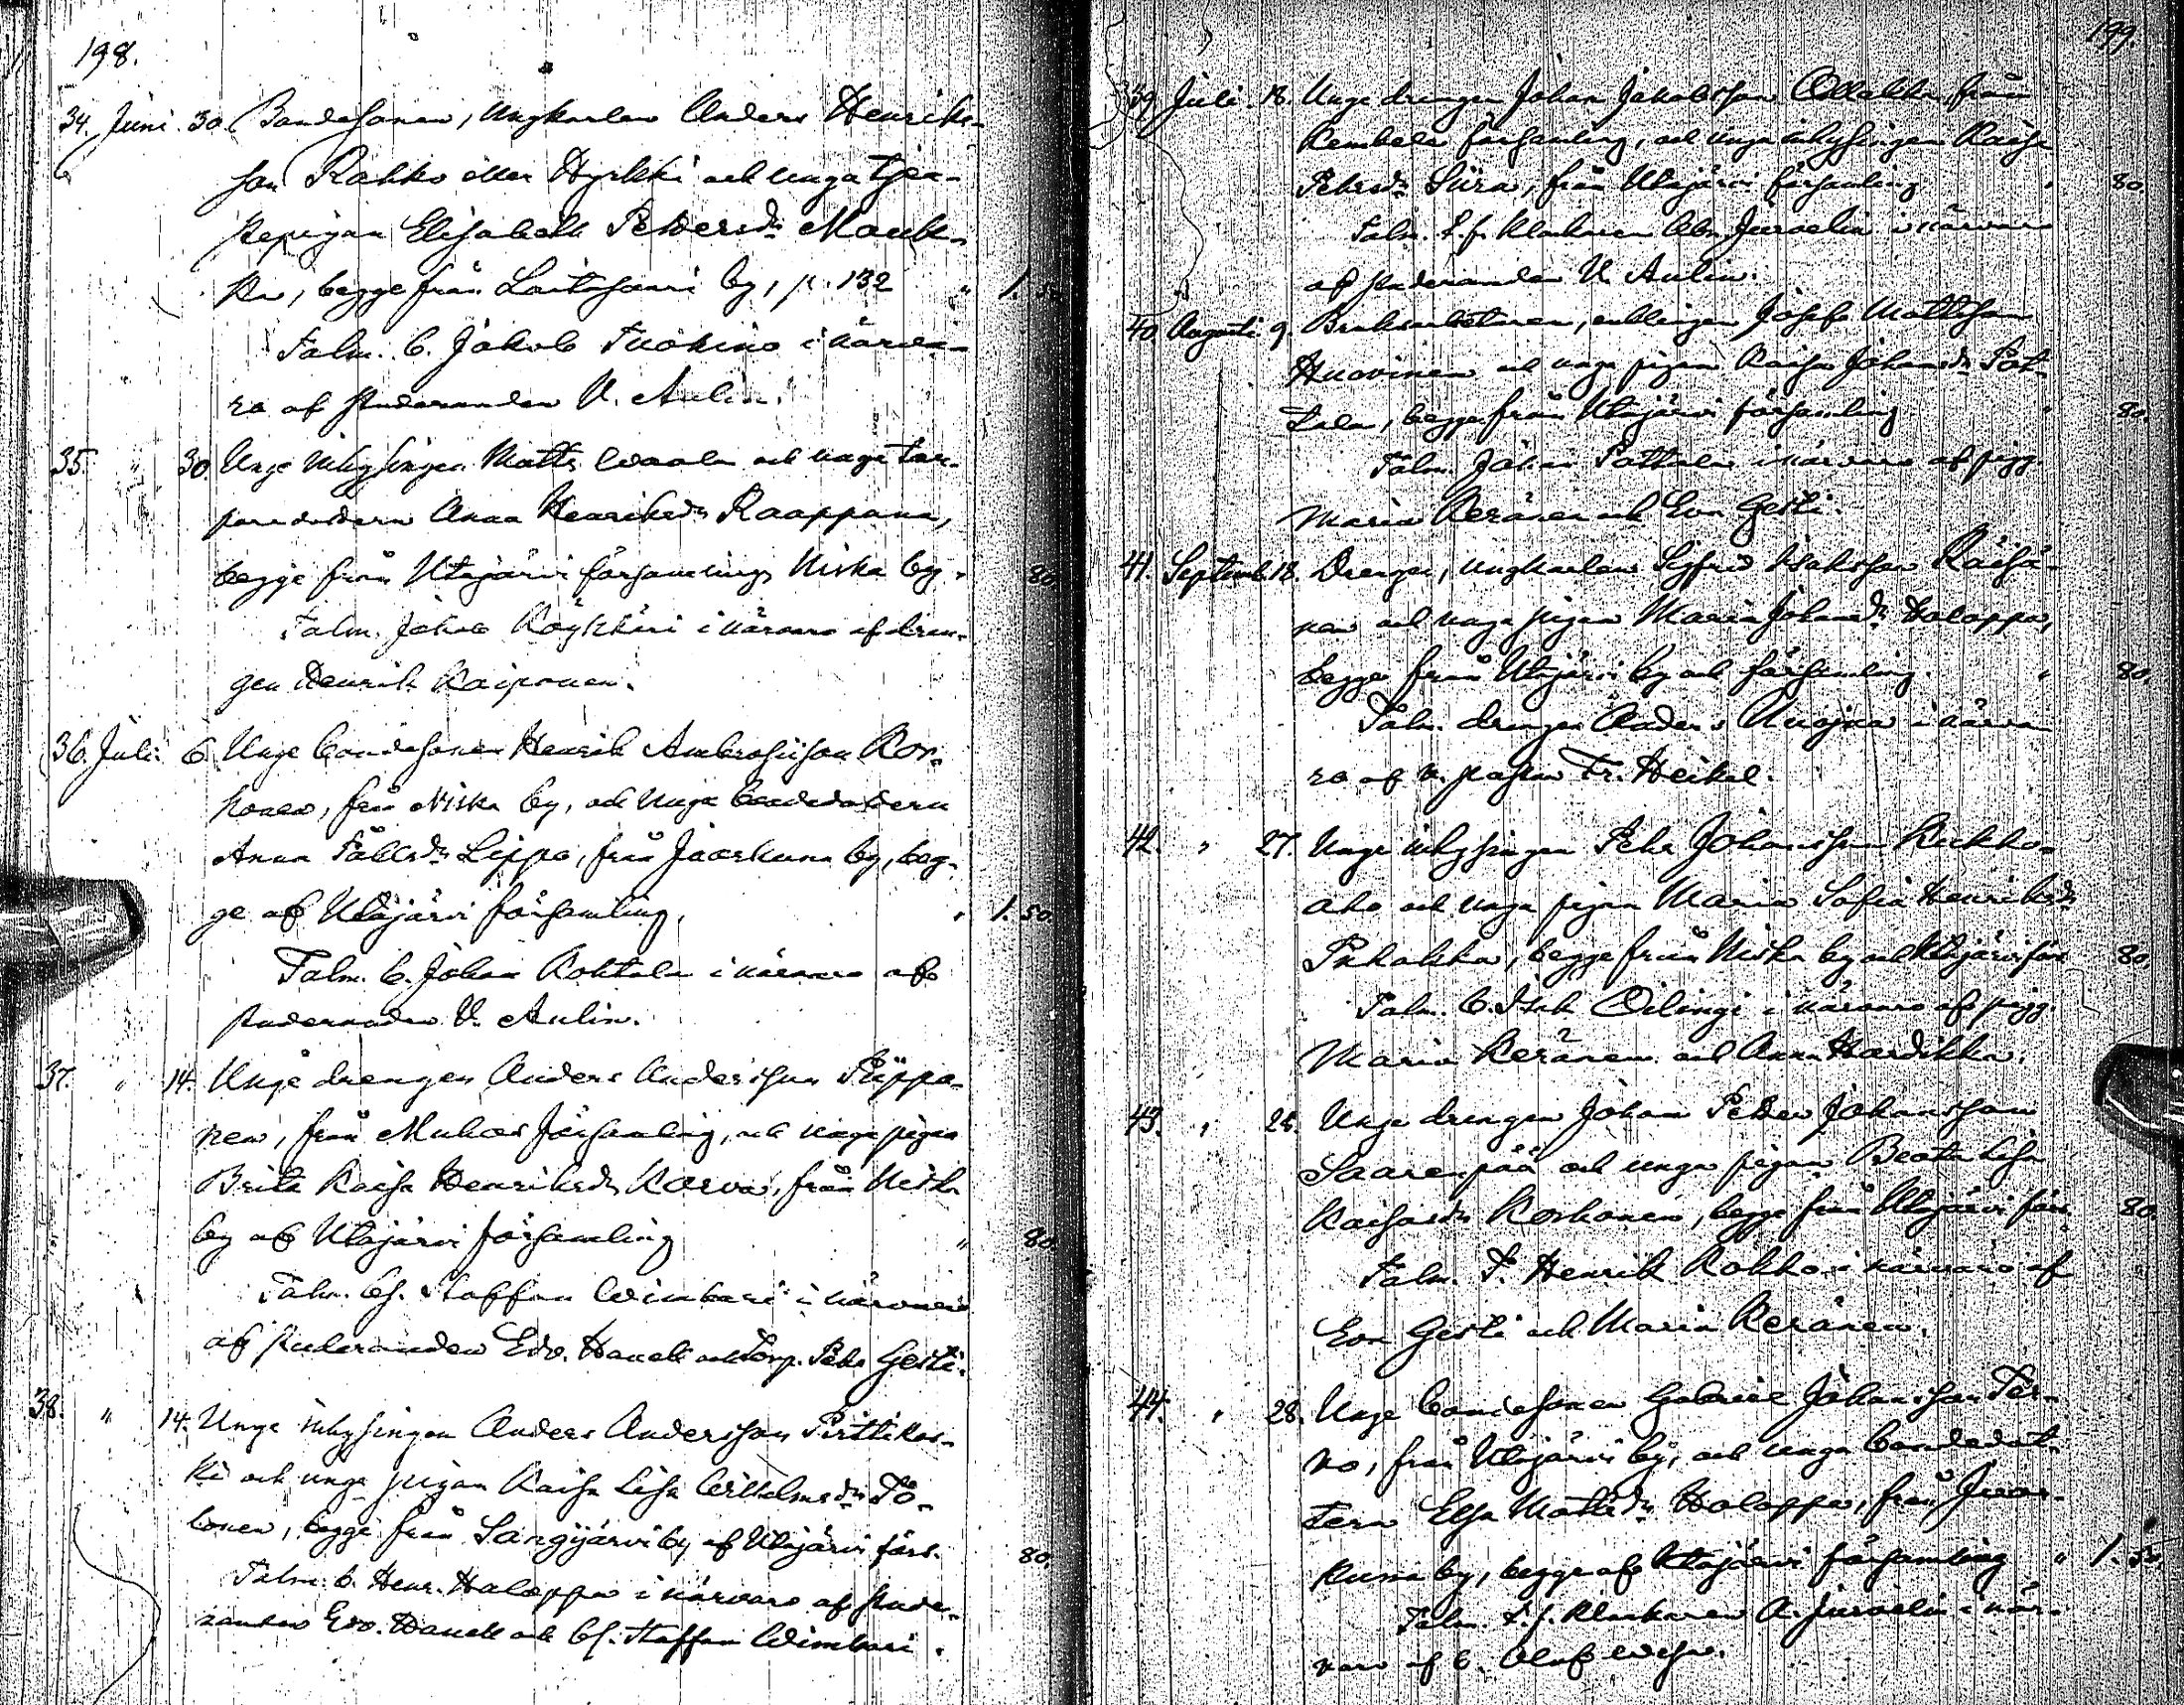 198.
34. Juni. 30. Bondesonen, ungkarlen Anders Henriks-
son Rahko eller Hyrkki och unga tjen-
stepigan Elisabeth Pettersdr
begge från Laitasaari by, p. 132 " 1. 50.
Talm. b. Jakob Tuokino i närva-
ro af studeranden V. Aulin.
35. " 30. Unge inhysingen Matts och unga tor-
paredottern Anna Henriksdr Raappana,
begge från Utajärvi församlings Niska by. 80.
Talm. Jakob i närvaro af dren-
gen Henrik Kaiponen.
36. Juli 6. Unge bondesonen Henrik Ambrosiison Kor-
honen, från Niska by, och unga bondedottern
Anna Pållsdr Lippo, från Juorkuna by, beg-
ge af Utajärvi församling. " 1. 50.
Talm. b. Johan Rohtala i närvaro af
studeranden V. Aulin.
37. " 14. Unge drengen Anders Andersson Piippo-
nen, från Muhos församling, och unga pigan
Brita Kaisa Henriksdr Karvo, från Niska
by af Utajärvi församling " 80.
Talm. bs. Staffan Wimbari i närvaro
af studeranden Edv. Hanell och torp. Pehr Gesti.
38. " 14. Unge inhysingen Anders Andersson Pirttikos-
ki och unga pigan Kaisa Lisa Wilhelmsdr Tö-
lönen, begge från Sangijärvi by af Utajärvi förs. 80.
Talm. b. Henr. Haloppa i närvaro af stude-
randen Edv. Hanell och bs. Staffan Wimbari.
199.
39. Juli. 18. Unge drengen Johan Jakobsson Ollakka, från
Kembele församling, och unga inhysingen Kaisa
Pehrsdr Siira, från Utajärvi församling " 80.
Talm. t. f. klockaren Abr. Juvelin i närvaro
af studeranden V. Aulin.
40. Augusti 9. Bruksarbetaren, enklingen Josef Mattsson
Huovinen och unga pigan Kaisa Johansdr Pot-
tala, begge från Utajärvi församling " 80.
Talm. Johan Pottala i närvaro af pigg.
Maria Keränen och Eva Gesti.
41. Septemb. 18. Drengen, ungkarlen Sigfrid Isaksson Räisä-
nen och unga pigan Maria Johansdr Holappa,
begge från Utajärvi by och församling. " 80.
Talm. drengen Anders Kuojna i närva-
ro af v. pastor Fr. Heikel.
42. " 27. Unge inhysingen Pehr Johansson Kukko-
aho och unga pigan Maria Sofia Henriksdr
Pahakka, begge från Niska by och Utajärvi förs. 80.
Talm. b. Isak Oilingi i närvaro af pigg.
Maria Keränen och Anna Hardikka.
43. " 28. Unge drengen Johan Petter Johansson
Saarenpää och unga pigan Beata Lisa
Kaisasdr Korhonen, begge från Utajärvi förs. 80.
Talm. T. Henrik Rohko i närvaro af
Eva Gesti och Maria Keränen.
44. " 28. Unge bondesonen Gabriel Johansson Ter-
vo, från Utajärvi by, och unga bondedot-
tern Elsa Mattsdr Holappa, från Juor-
kuna by, begge af Utajärvi församling " 1. 50.
Talm. t. f. klockaren A. Juvelin i när-
varo af b. Olof